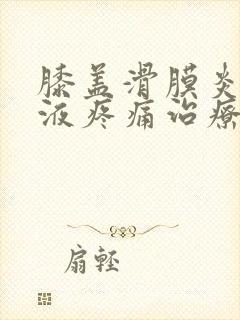 膝盖滑膜炎
液疼痛治療
扇輕